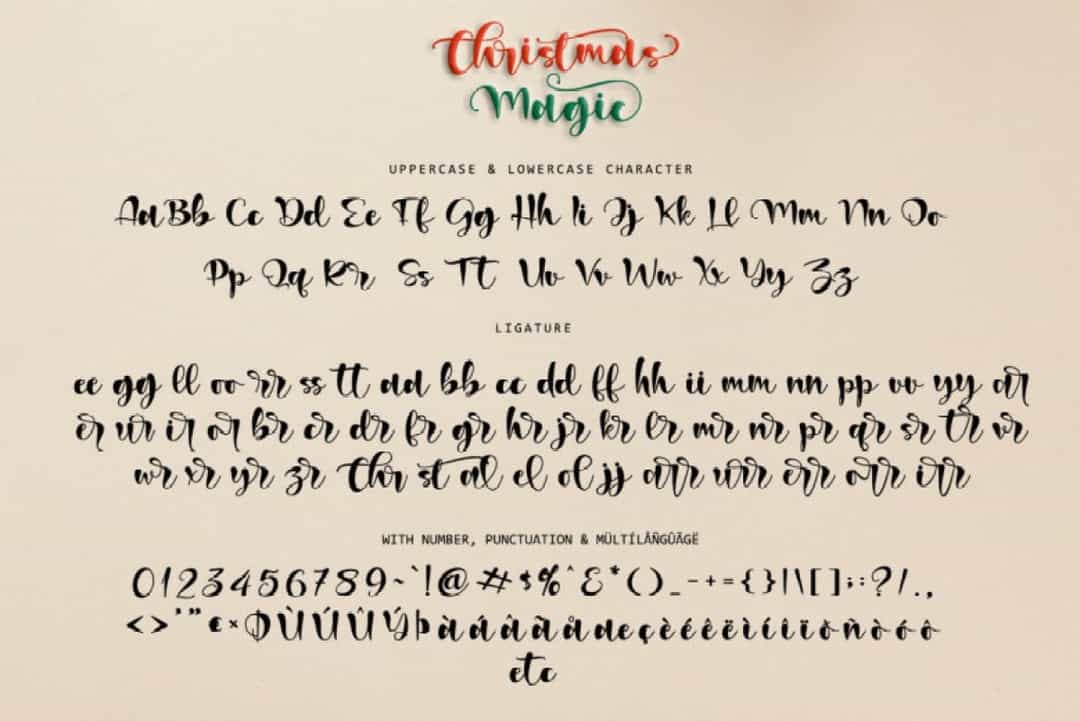 Christmas
Magic
UPPERCASE & LOWERCASE CHARACTER
Aa Bb Cc Dd Ee Ff Gg Hh Ii Jj Kk Ll Mm Nn Oo
Pp Qq Rr Ss Tt Uu Vv Ww Xx Yy Zz
LIGATURE
ee gg ll oo rr ss tt aa bb cc dd ff hh ii mm nn pp vv yy ar
er ur ir or br cr dr fr gr hr jr kr lr mr nr pr qr sr tr vr
wr xr yr zr thr st al el ol jj arr urr err orr irr
WITH NUMBER, PUNCTUATION & MÜLTÍLÂÑGÛÃGË
0123456789~`!@#$%^&*()_-+={}|\[];:?/.,
<>'"€×ØÙÚÛÝÞàáâãåæçèéêëìíîïðñòóô
etc